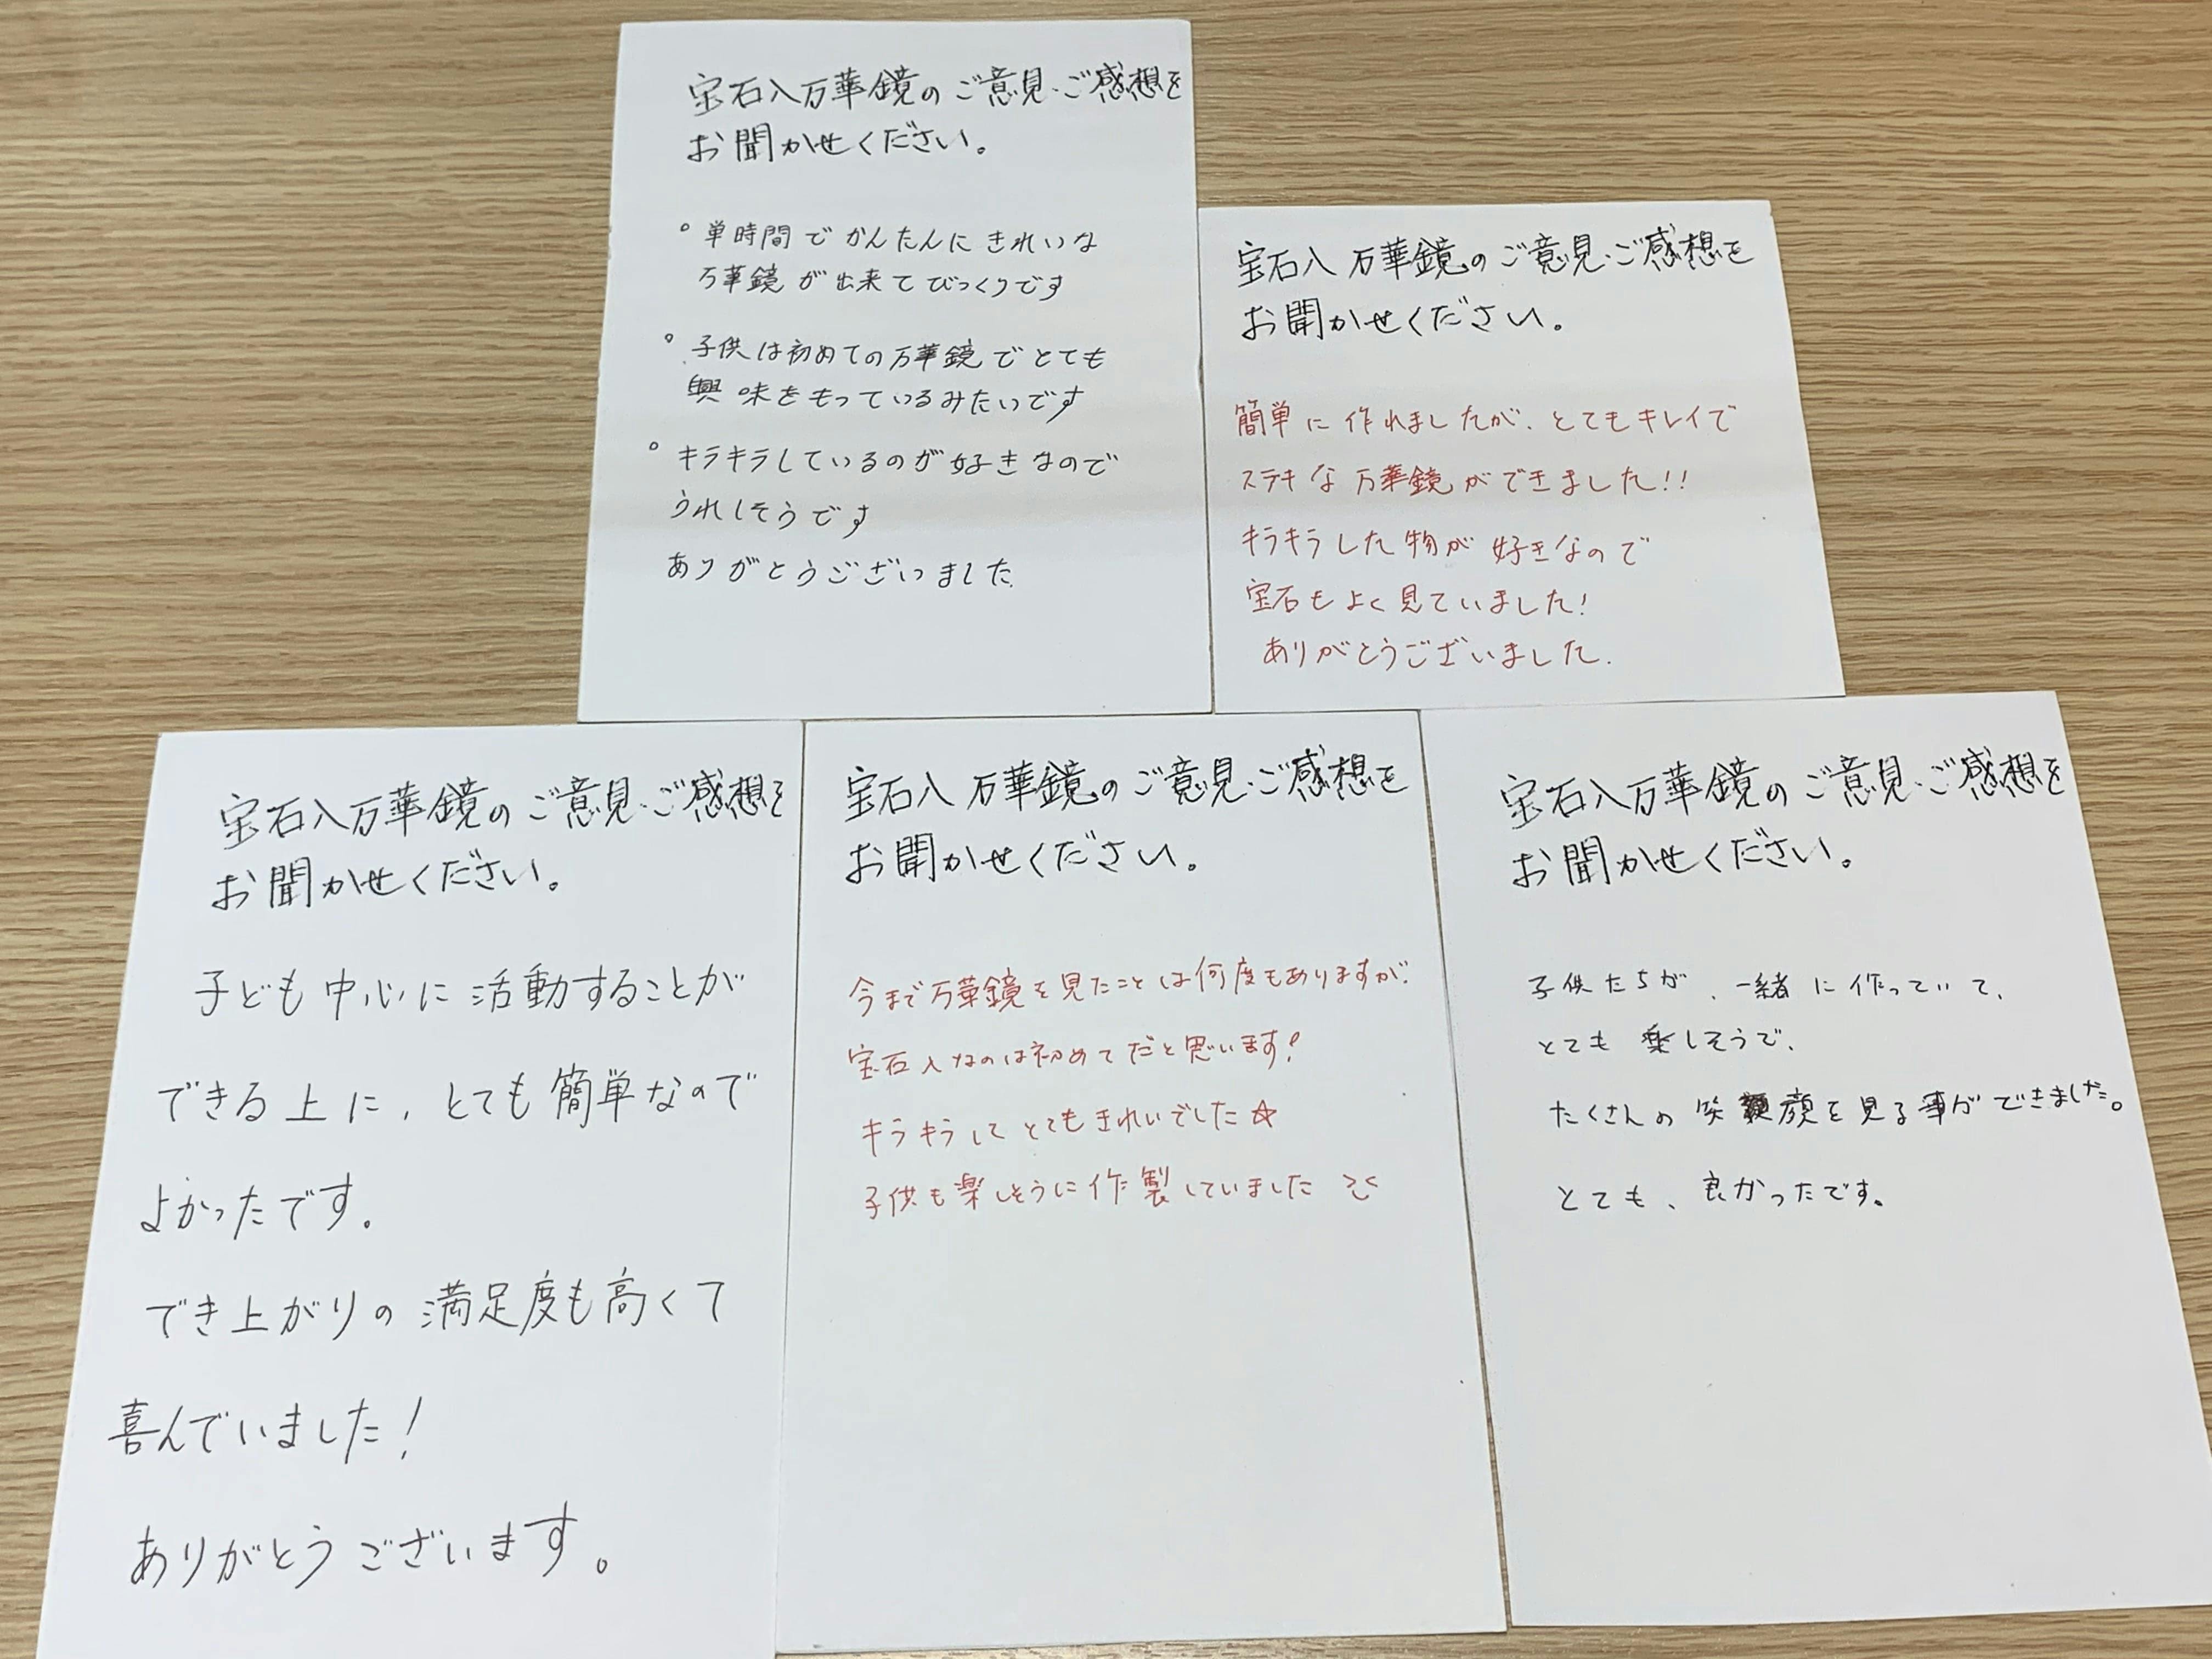 宝石入万華鏡のご意見・ご感想を
お聞かせください。
。単時間でかんたんにきれいな
万華鏡が出来てびっくりです
。子供は初めての万華鏡でとても
興味をもっているみたいです
。キラキラしているのが好きなので
うれしそうです
ありがとうございました.
宝石入万華鏡のご意見・ご感想を
お聞かせください。
簡単に作れましたが、とてもキレイで
ステキな万華鏡ができました!!
キラキラした物が好きなので
宝石もよく見ていました!
ありがとうございました.
宝石入万華鏡のご意見・ご感想を
お聞かせください。
子ども中心に活動することが
できる上に、とても簡単なので
よかったです。
でき上がりの満足度も高くて
喜んでいました!
ありがとうございます。
宝石入万華鏡のご意見・ご感想を
お聞かせください。
今まで万華鏡を見たことは何度もありますが、
宝石入なのは初めてだと思います!
キラキラしてとてもきれいでした☆
子供も楽しそうに作製していました
宝石入万華鏡のご意見・ご感想を
お聞かせください。
子供たちが、一緒に作っていて、
とても楽しそうで、
たくさんの笑顔を見る事ができました。
とても、良かったです。